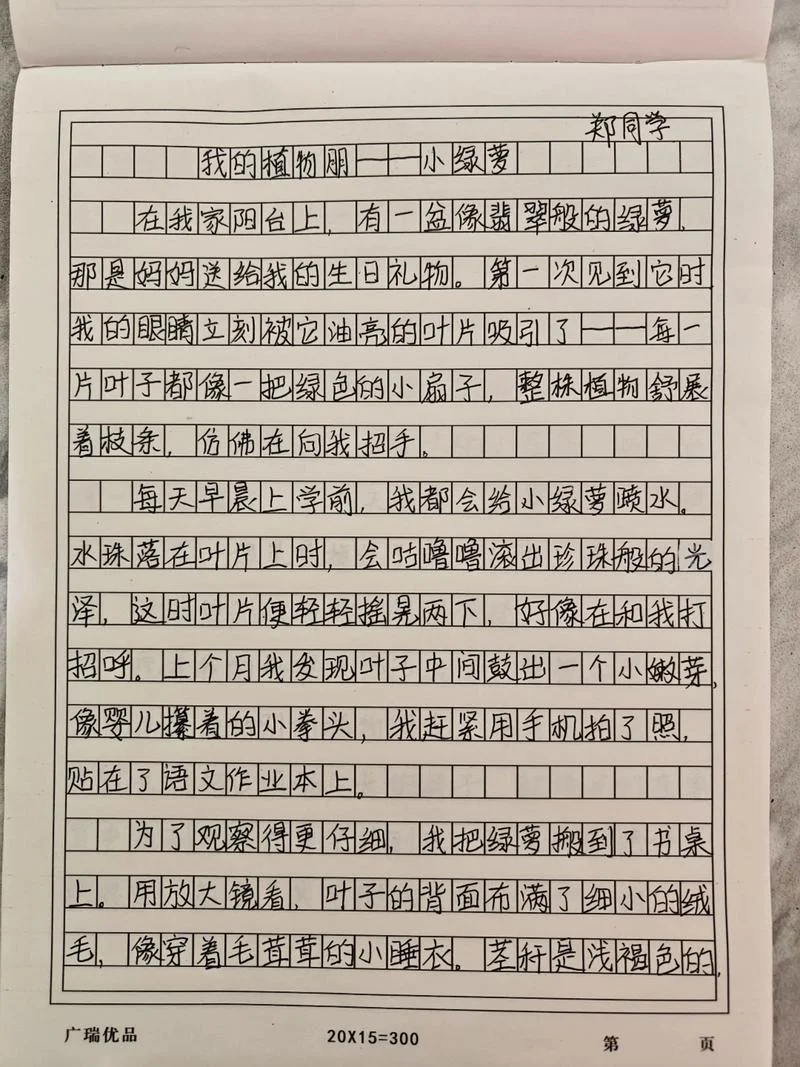 郑同学
我的植物朋——小绿萝
在我家阳台上，有一盆像翡翠般的绿萝，
那是妈妈送给我的生日礼物。第一次见到它时
我的眼睛立刻被它油亮的叶片吸引了——每一
片叶子都像一把绿色的小扇子，整株植物舒展
着枝条，仿佛在向我招手。
每天早晨上学前，我都会给小绿萝喷水。
水珠落在叶片上时，会咕噜噜滚出珍珠般的光
泽，这时叶片便轻轻摇晃两下，好像在和我打
招呼。上个月我发现叶子中间鼓出一个小嫩芽，
像婴儿攥着的小拳头，我赶紧用手机拍了照，
贴在了语文作业本上。
为了观察得更仔细，我把绿萝搬到了书桌
上。用放大镜看，叶子的背面布满了细小的绒
毛，像穿着毛茸茸的小睡衣。茎秆是浅褐色的，
广瑞优品 20X15=300 第 页